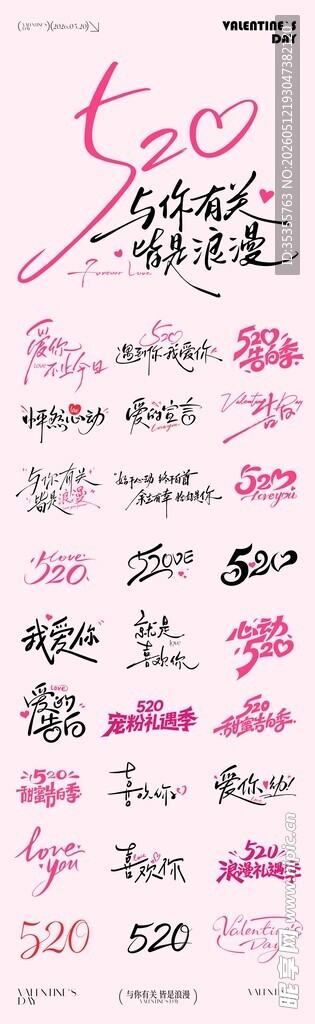 VALENTINE'S DAY
(2026.05.20)
VALENTINE'S
DAY
520
与你有关
皆是浪漫
Forever Love
爱你
LOVE 不止今日
520
遇到你 我爱你
520
告白季
怦然心动
LOVE
爱的宣言
Loveyou
Valentine's Day
告白
与你有关
皆是浪漫
始于心动 终于白首
余生有幸 恰好是你
520
loveyou
love
520
52LOVE
520
我爱你
就是
love
喜欢你
心动
520
LOVE
爱的
告白
520
宠粉礼遇季
520
甜蜜告白季
520
甜蜜告白季
喜欢你
爱你呦!
love
you
喜欢你
520
浪漫礼遇季
520
520
Valentine's
Day
VALENTINE'S
DAY
(与你有关 皆是浪漫)
VALENTINE'S
DAY
昵享网 www.nipic.cn
ID:35355763 NO:20260512193047382100